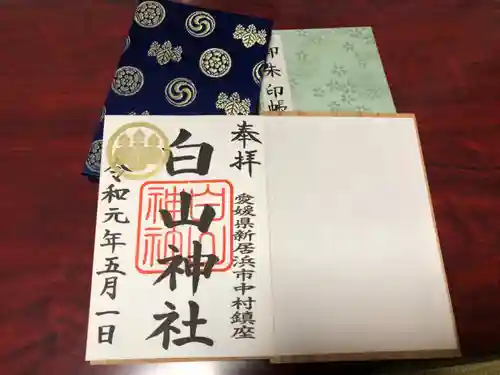 御朱印帳
奉拝
愛媛県新居浜市中村鎮座
白山神社
白山
神社
令和元年五月一日